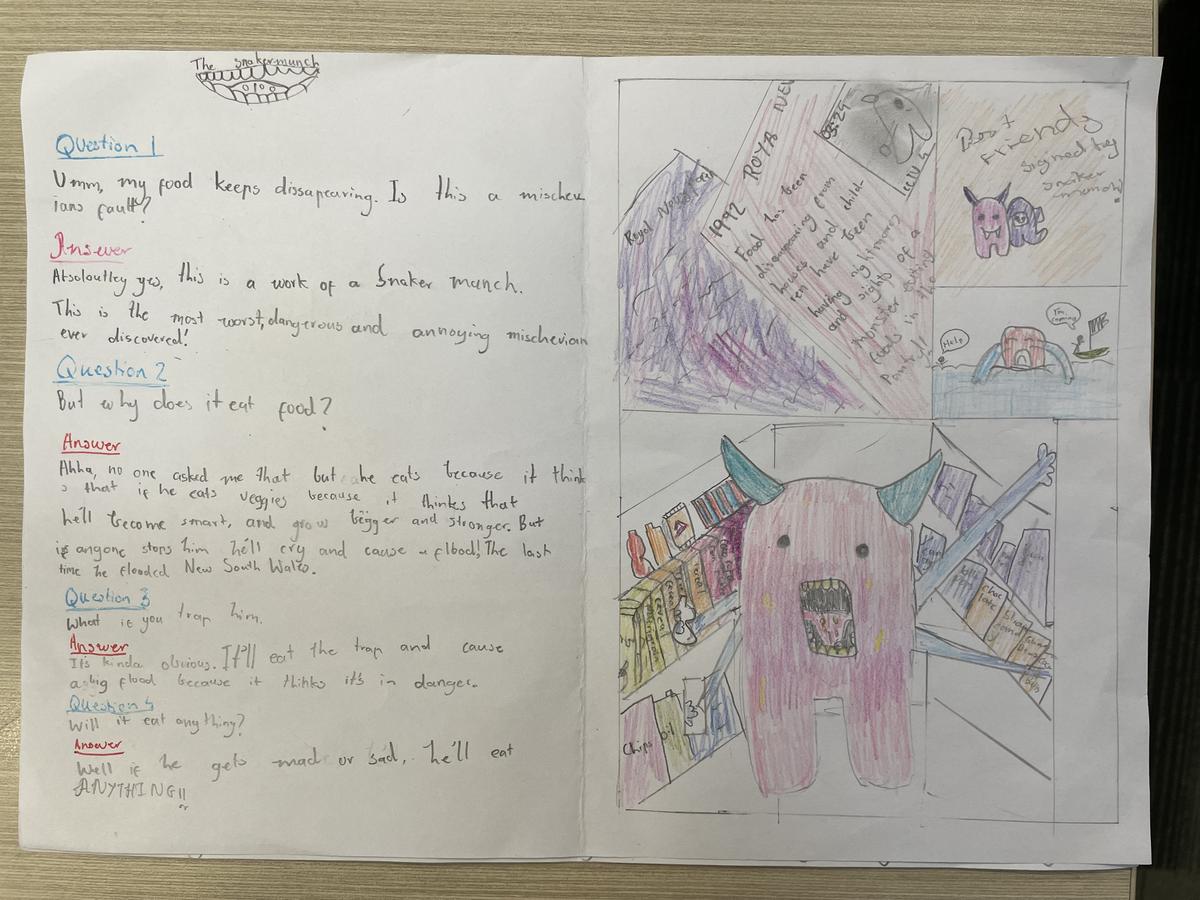 The snakermunch
Question 1
Umm, my food keeps dissapearing. Is this a mischev
ians fault?
Answer
Absoloutley yes, this is a work of a Snaker munch.
This is the most worst, dangerous and annoying mischevian
ever discovered!
Question 2
But why does it eat food?
Answer
Ahha, no one asked me that but he eats because it think
s that if he eats veggies because it thinkes that
he'll become smart, and grow bigger and stronger. But
if anyone stops him he'll cry and cause a flood! The last
time he flooded New South Wales.
Question 3
What if you trap him.
Answer
It's kinda obvious. It'll eat the trap and cause
a big flood because it thinks it's in danger.
Question 4
Will it eat anything?
Answer
Well if he gets mad or sad, he'll eat
ANYTHING!!
Royal
1992
03:24
Food has been
disappearing from
houses and child-
ren have been
having nightmares
and sights of a
monster
Best
Friends
signed by
snaker
munch
Help
I'm
coming
Chips
oil
choc
late